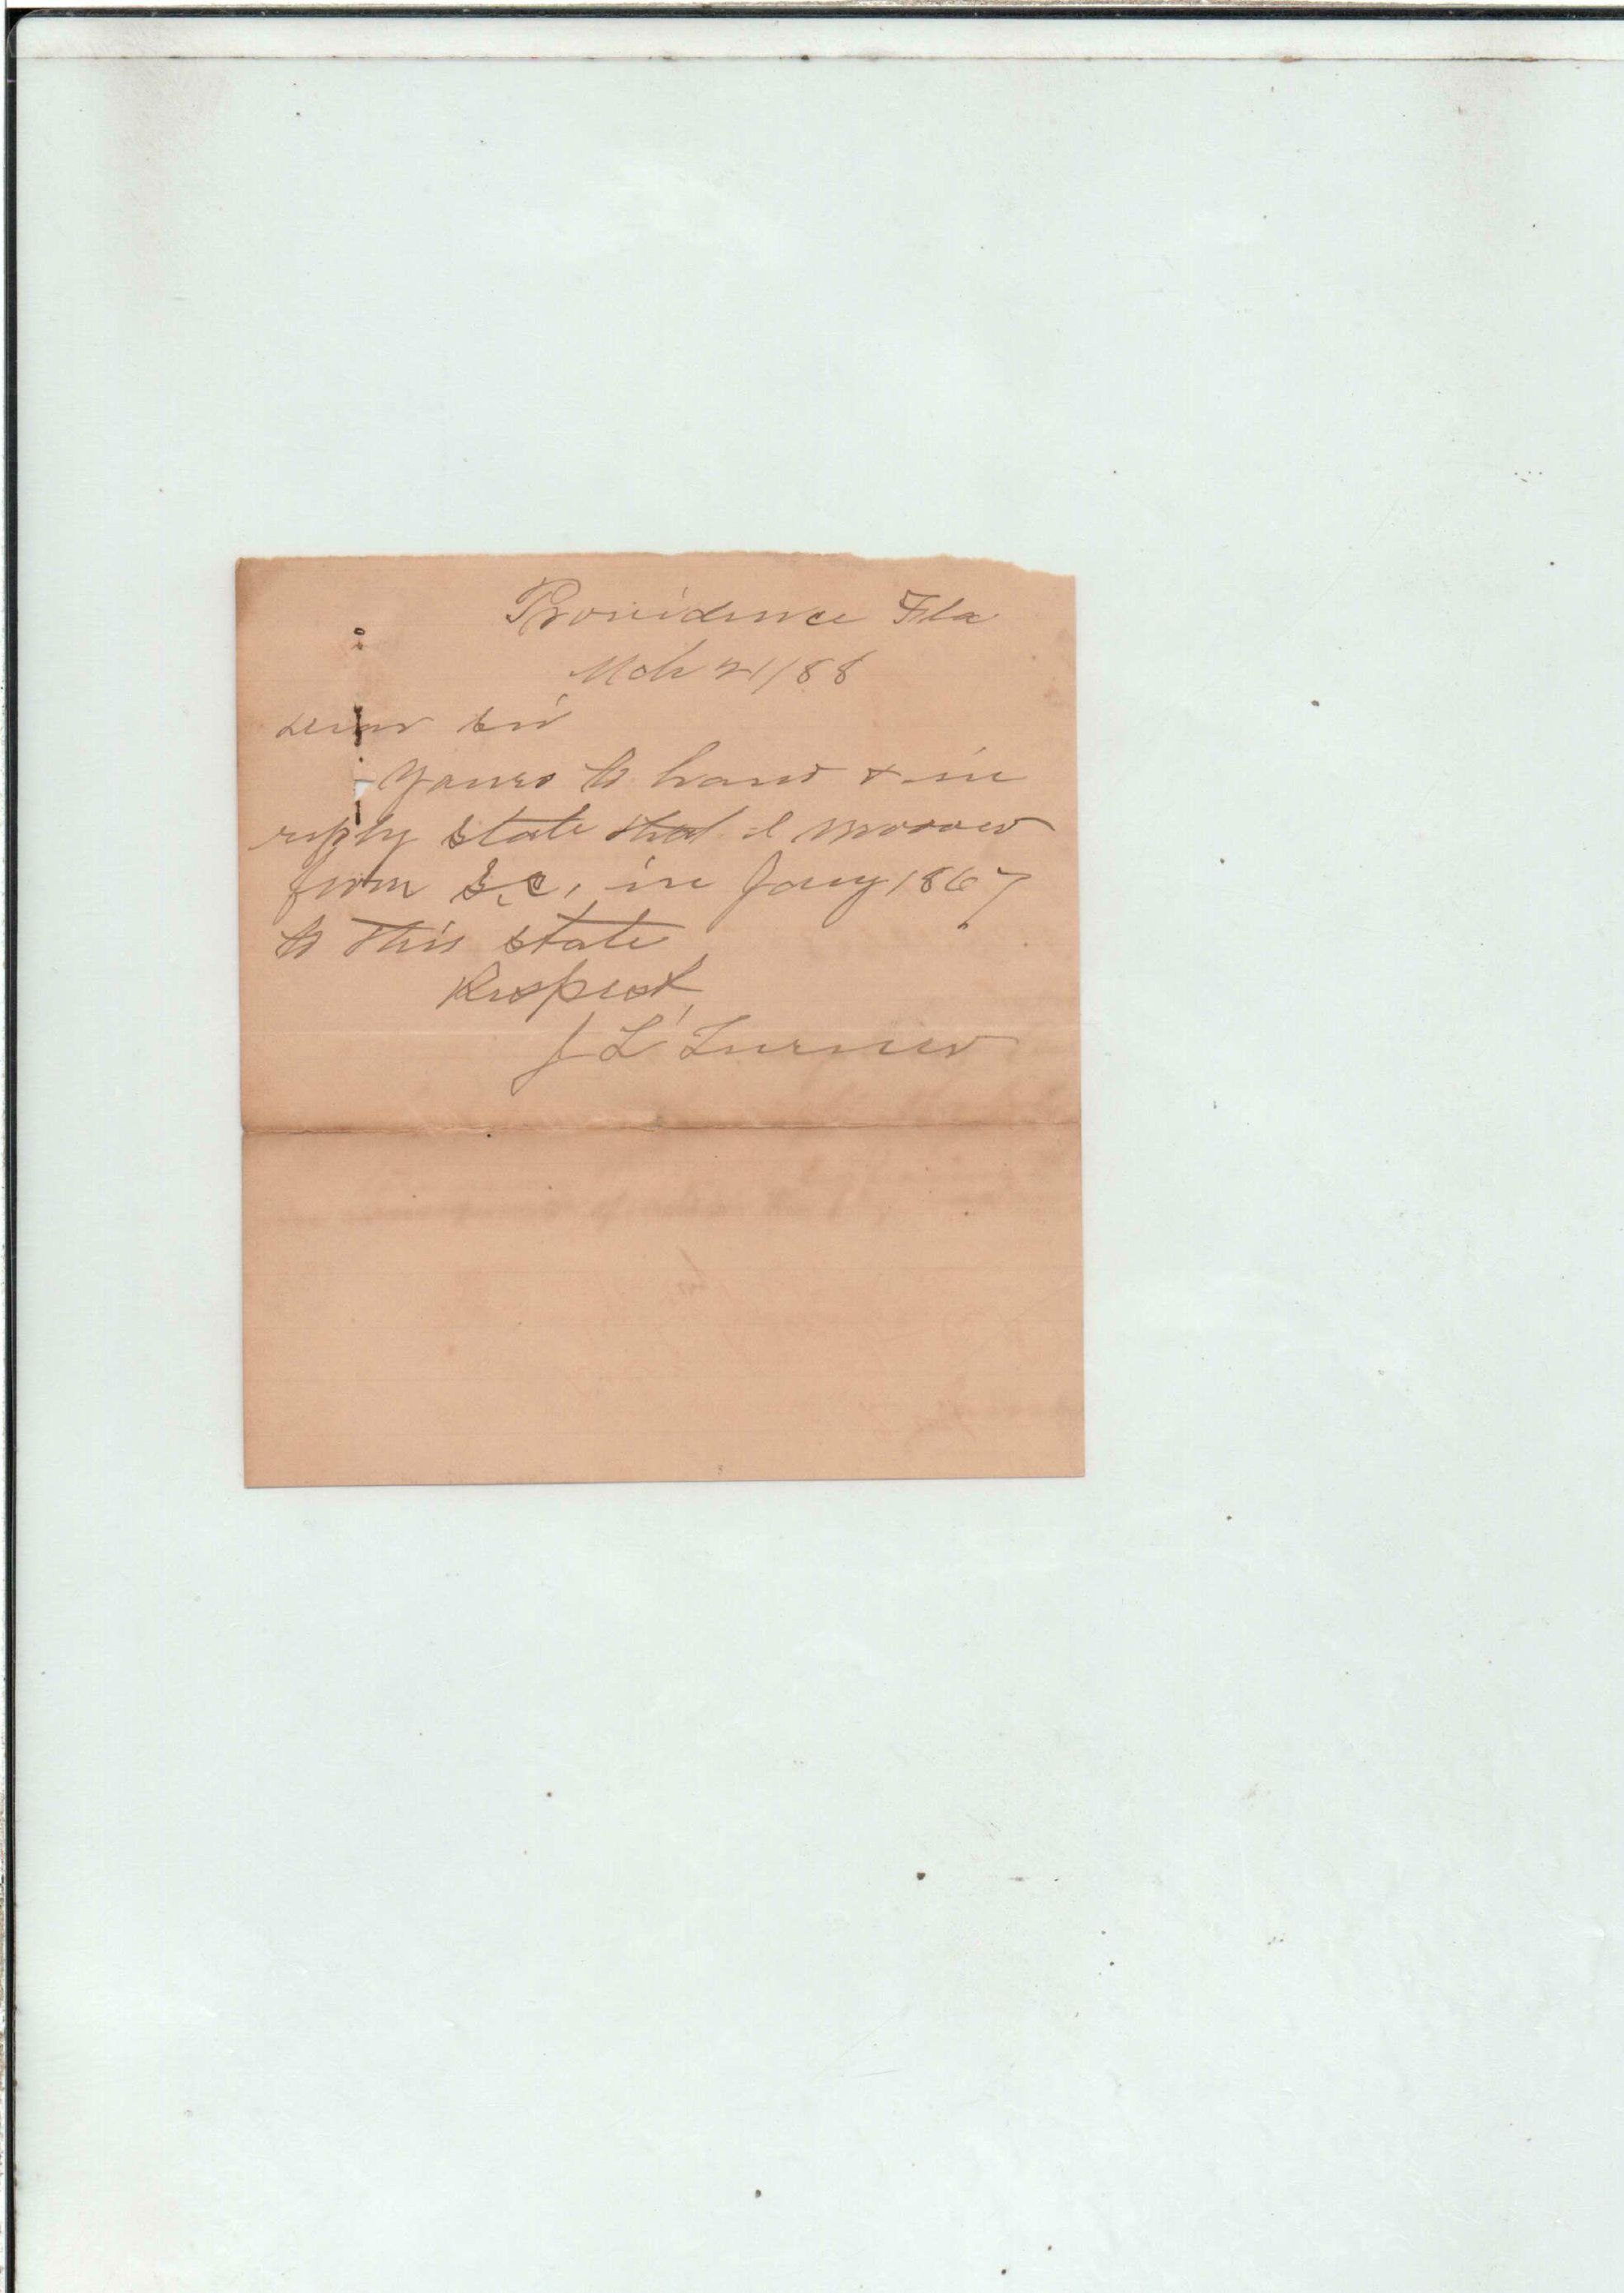 Providence Fla
Mch 21/88
Dear Sir
Yours to hand & in
reply state that I moved
from S.C. in Jany 1867
to this state
Respect
J L Turner